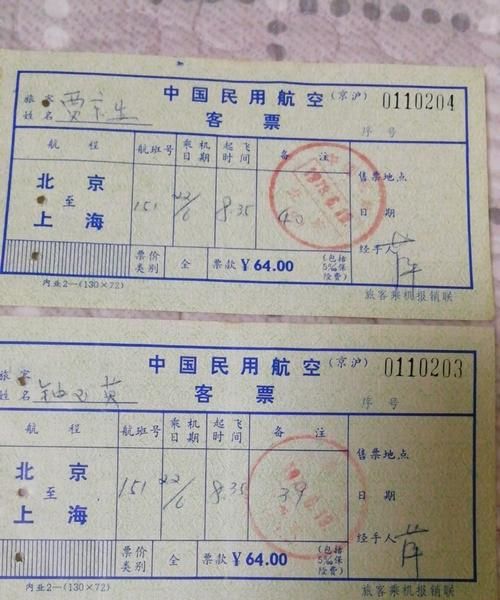 中国民用航空（京沪） 0110204
旅客
姓名 贾京生
客票
序号
航程 航班号 乘机日期 起飞时间 备注
售票地点
北京
至
上海
151 22/6 8.35 40
日期
经手人 薛
票价类别 全 票款 ¥64.00 （包括5‰保险费）
内业2—（130×72） 旅客乘机报销联
中国民用航空（京沪） 0110203
旅客
姓名
客票
序号
航程 航班号 乘机日期 起飞时间 备注
售票地点
北京
至
上海
151 22/6 8.35 39
日期
经手人 薛
票价类别 全 票款 ¥64.00 （包括5‰保险费）
内业2—（130×72） 旅客乘机报销联